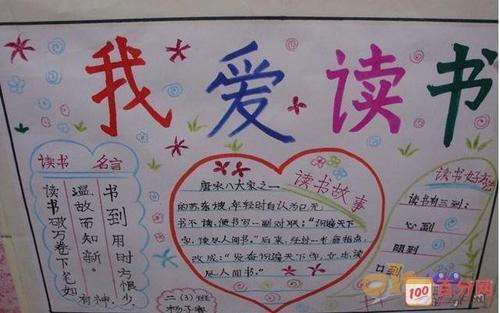 我爱读书
读书 名言
书到用时方恨少,
温故而知新。
读书破万卷下笔如有神,
读书故事
唐宋八大家之一
的苏东坡,年轻时自认为已无
书不读,便书写一副对联:"识遍天下
字,读尽人间书。"后来,
改成:"发奋识遍天下字,立志读
尽人间书。"
读书好
读书有三到:
心到
眼到
口到
二(3)班
杨子
100 百分网